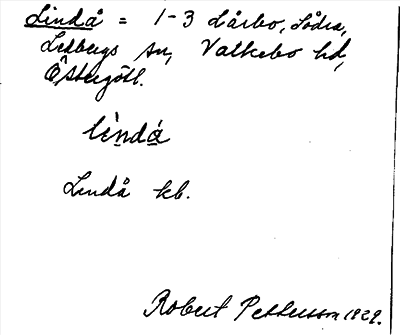 Lindå = 1-3 Lårbo, Södra,
Ledbergs sn, Valkebo hd,
Östergötl.
lìndá
Lindå kb.
Robert Pettersson 1929.